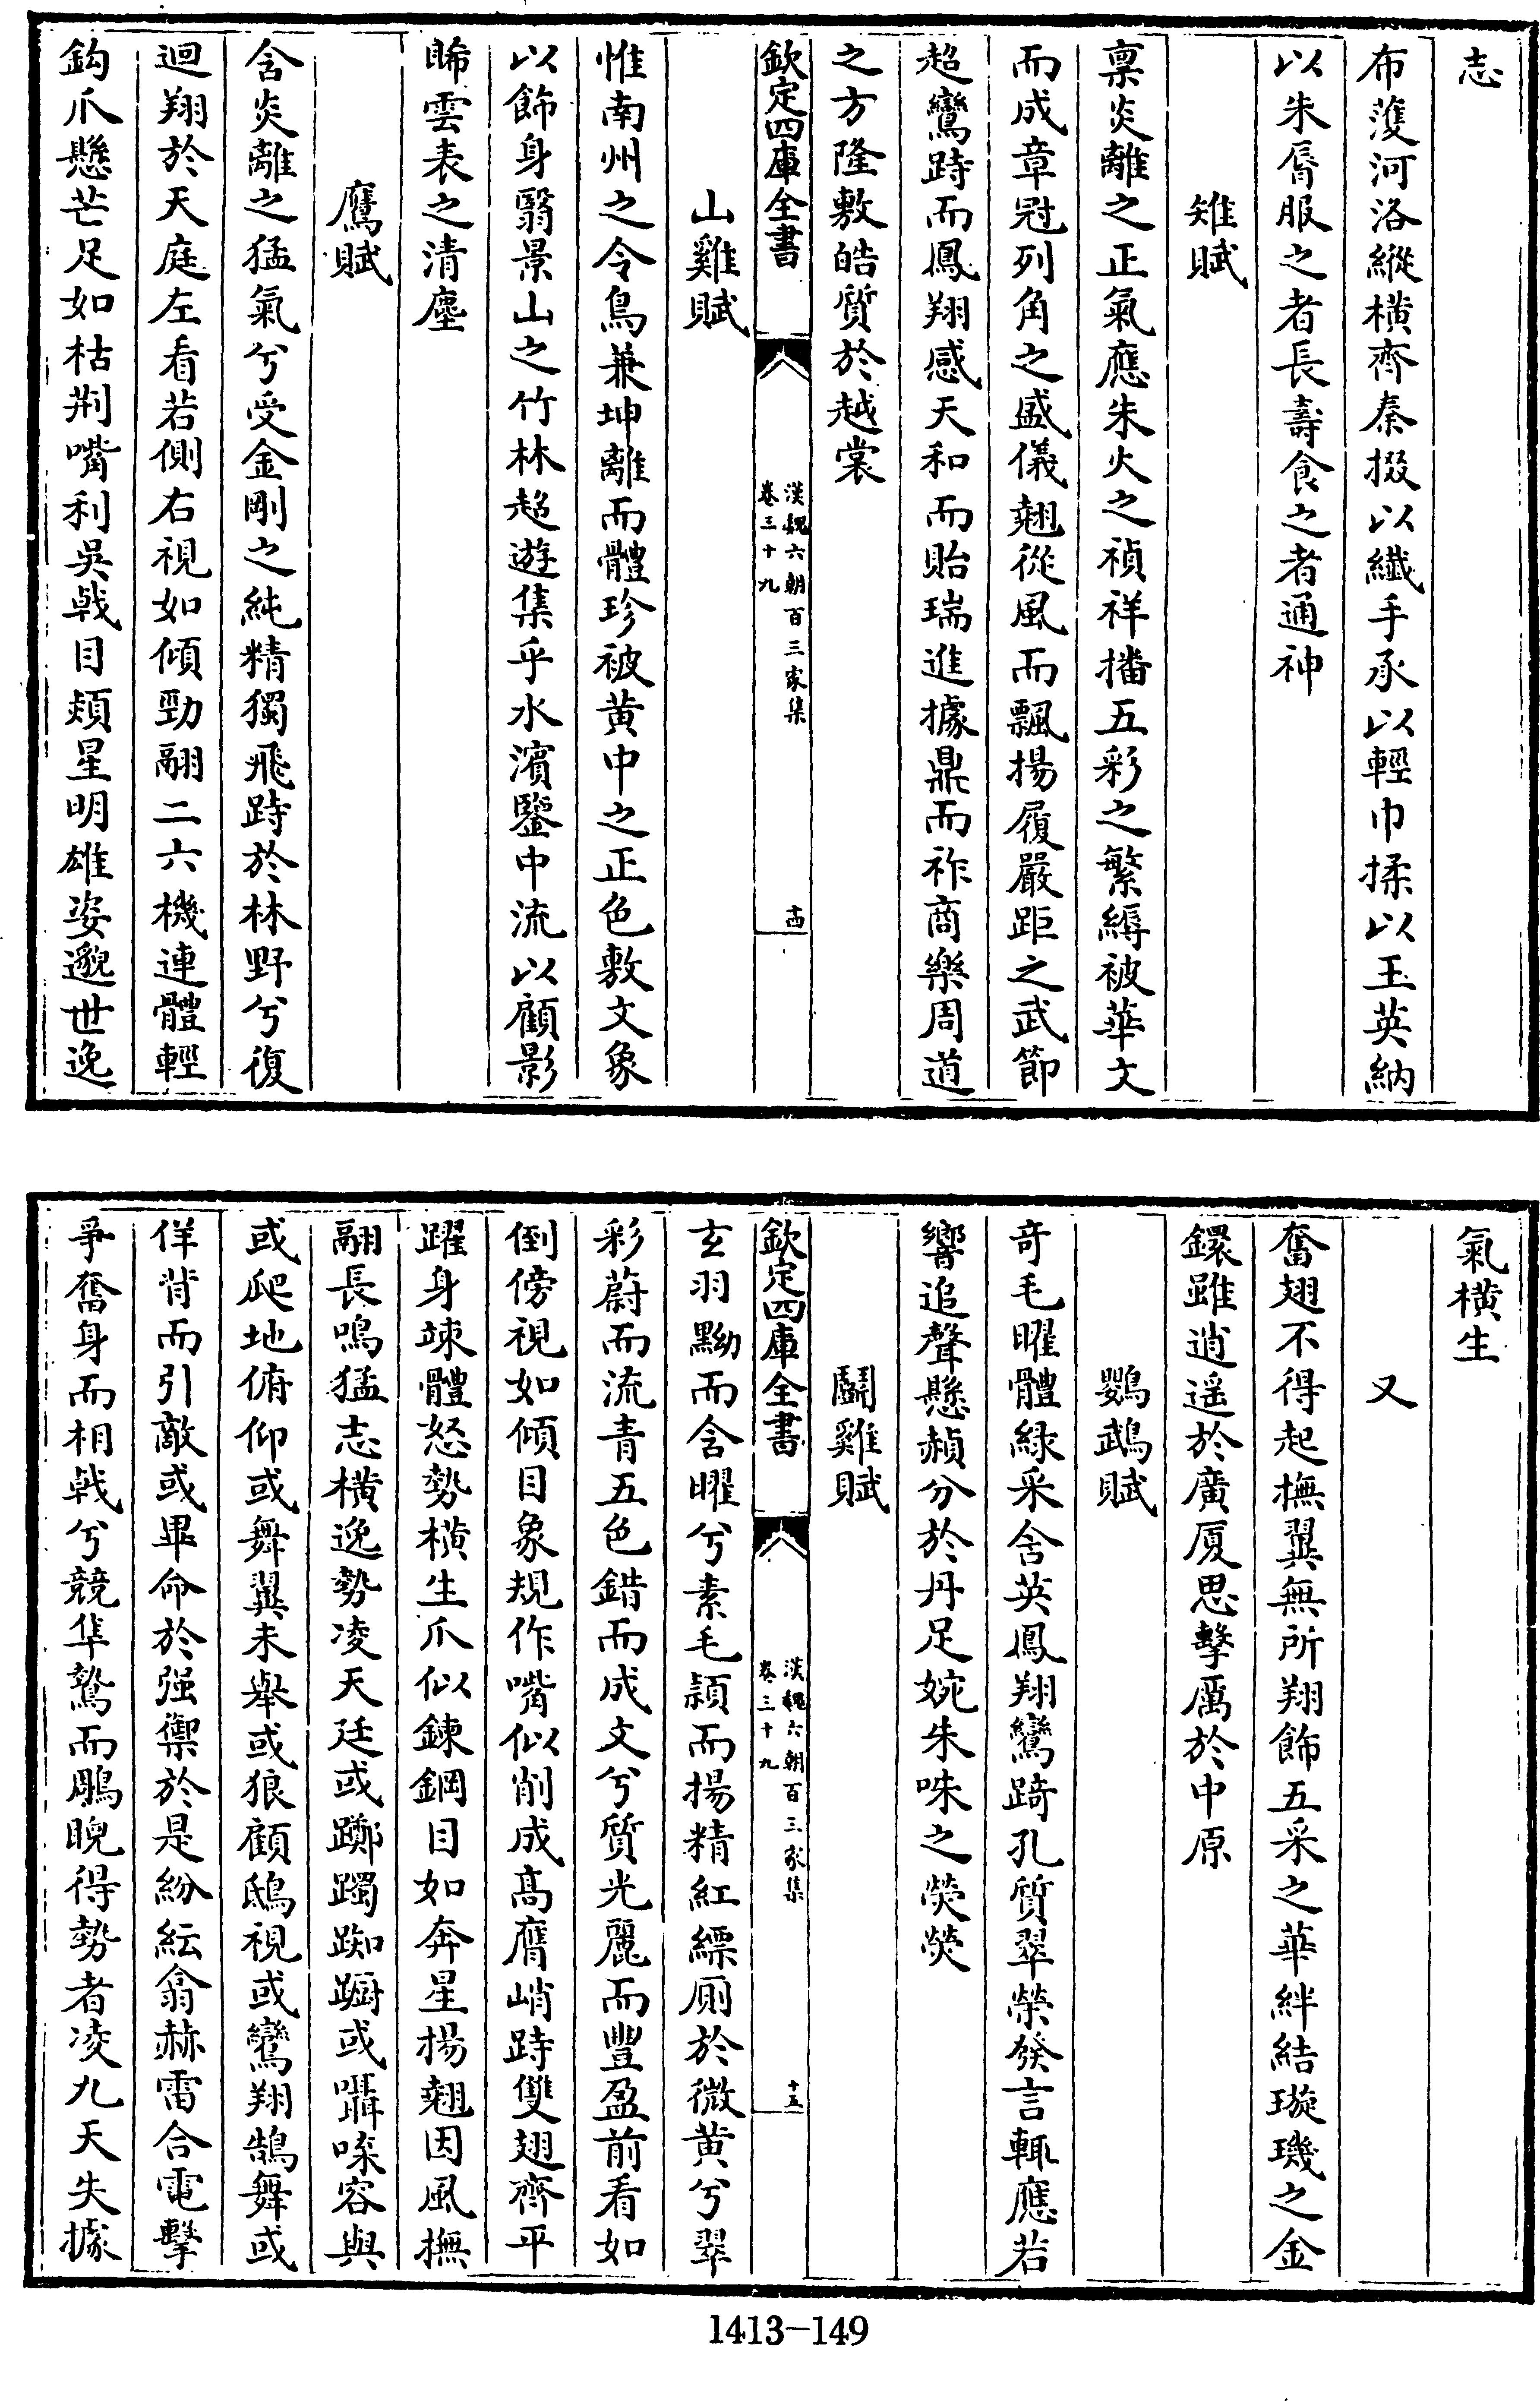 志
布濩河洛縱橫齊秦掇以纖手承以輕巾揉以玉英納
以朱脣服之者長壽食之者通神
雉賦
稟炎離之正氣應朱火之禎祥播五彩之繁縟被華文
而成章冠列角之盛儀翹從風而飄揚履嚴距之武節
超鸞跱而鳳翔感天和而貽瑞進據鼎而祚商樂周道
之方隆敷皓質於越裳
欽定四庫全書
漢魏六朝百三家集
卷三十九
十四
山雞賦
惟南州之令鳥兼坤離而體珍被黃中之正色敷文象
以飾身翳景山之竹林超遊集乎水濱鑒中流以顧影
晞雲表之清塵
鷹賦
含炎離之猛氣兮受金剛之純精獨飛跱於林野兮復
迴翔於天庭左看若側右視如傾勁翮二六機連體輕
鈎爪懸芒足如枯荆嘴利吳戟目頰星明雄姿邈世逸
氣橫生
又
奮翅不得起撫翼無所翔飾五采之華絆結璇璣之金
鐶雖逍遥於廣厦思擊厲於中原
鸚鵡賦
奇毛曜體綠采含英鳳翔鸞踦孔質翠榮發言輒應若
響追聲懸赬分於丹足婉朱咮之熒熒
鬬雞賦
欽定四庫全書
漢魏六朝百三家集
卷三十九
十五
玄羽黝而含曜兮素毛頴而揚精紅縹厠於微黃兮翠
彩蔚而流青五色錯而成文兮質光麗而豐盈前看如
倒傍視如傾目象規作嘴似削成高膺峭跱雙翅齊平
躍身竦體怒勢橫生爪似鍊鋼目如奔星揚翹因風撫
翮長鳴猛志橫逸勢凌天廷或躑躅踟蹰或囁喍容與
或爬地俯仰或舞翼未舉或狼顧鴟視或鸞翔鵠舞或
佯背而引敵或畢命於强禦於是紛紜翕赫雷合電擊
爭奮身而相戟兮競隼鷙而鵰睨得勢者凌九天失據
1413-149